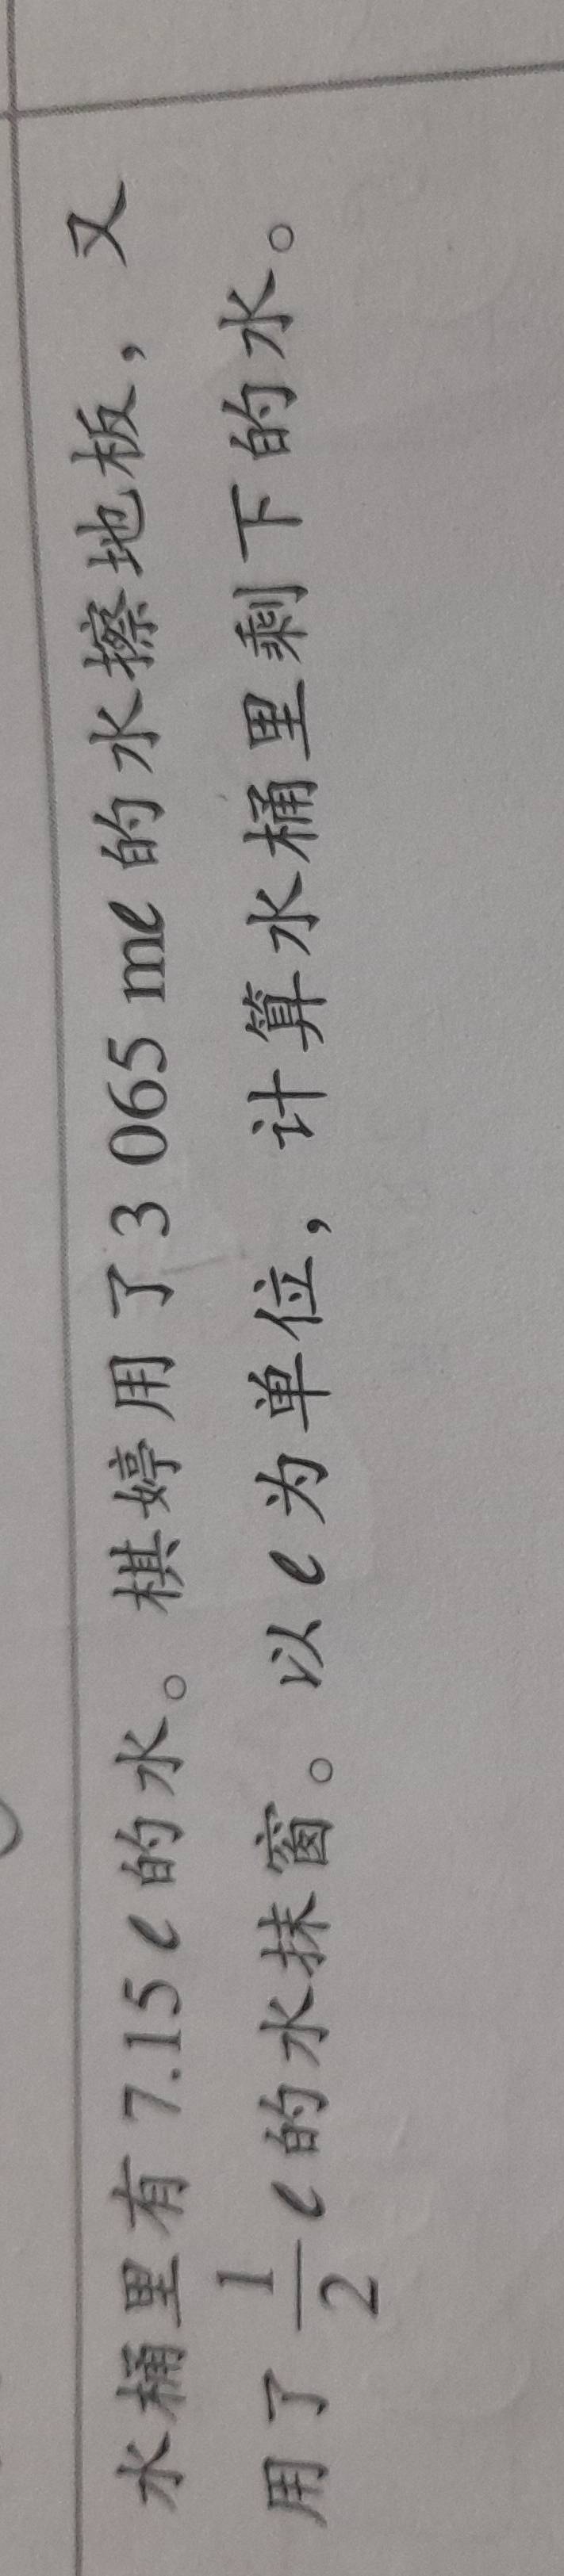 水桶里有 7.15 ℓ 的水。棋婷用了 3 065 mℓ 的水擦地板，又
用了 1/2 ℓ 的水抹窗。以 ℓ 为单位，计算水桶里剩下的水。